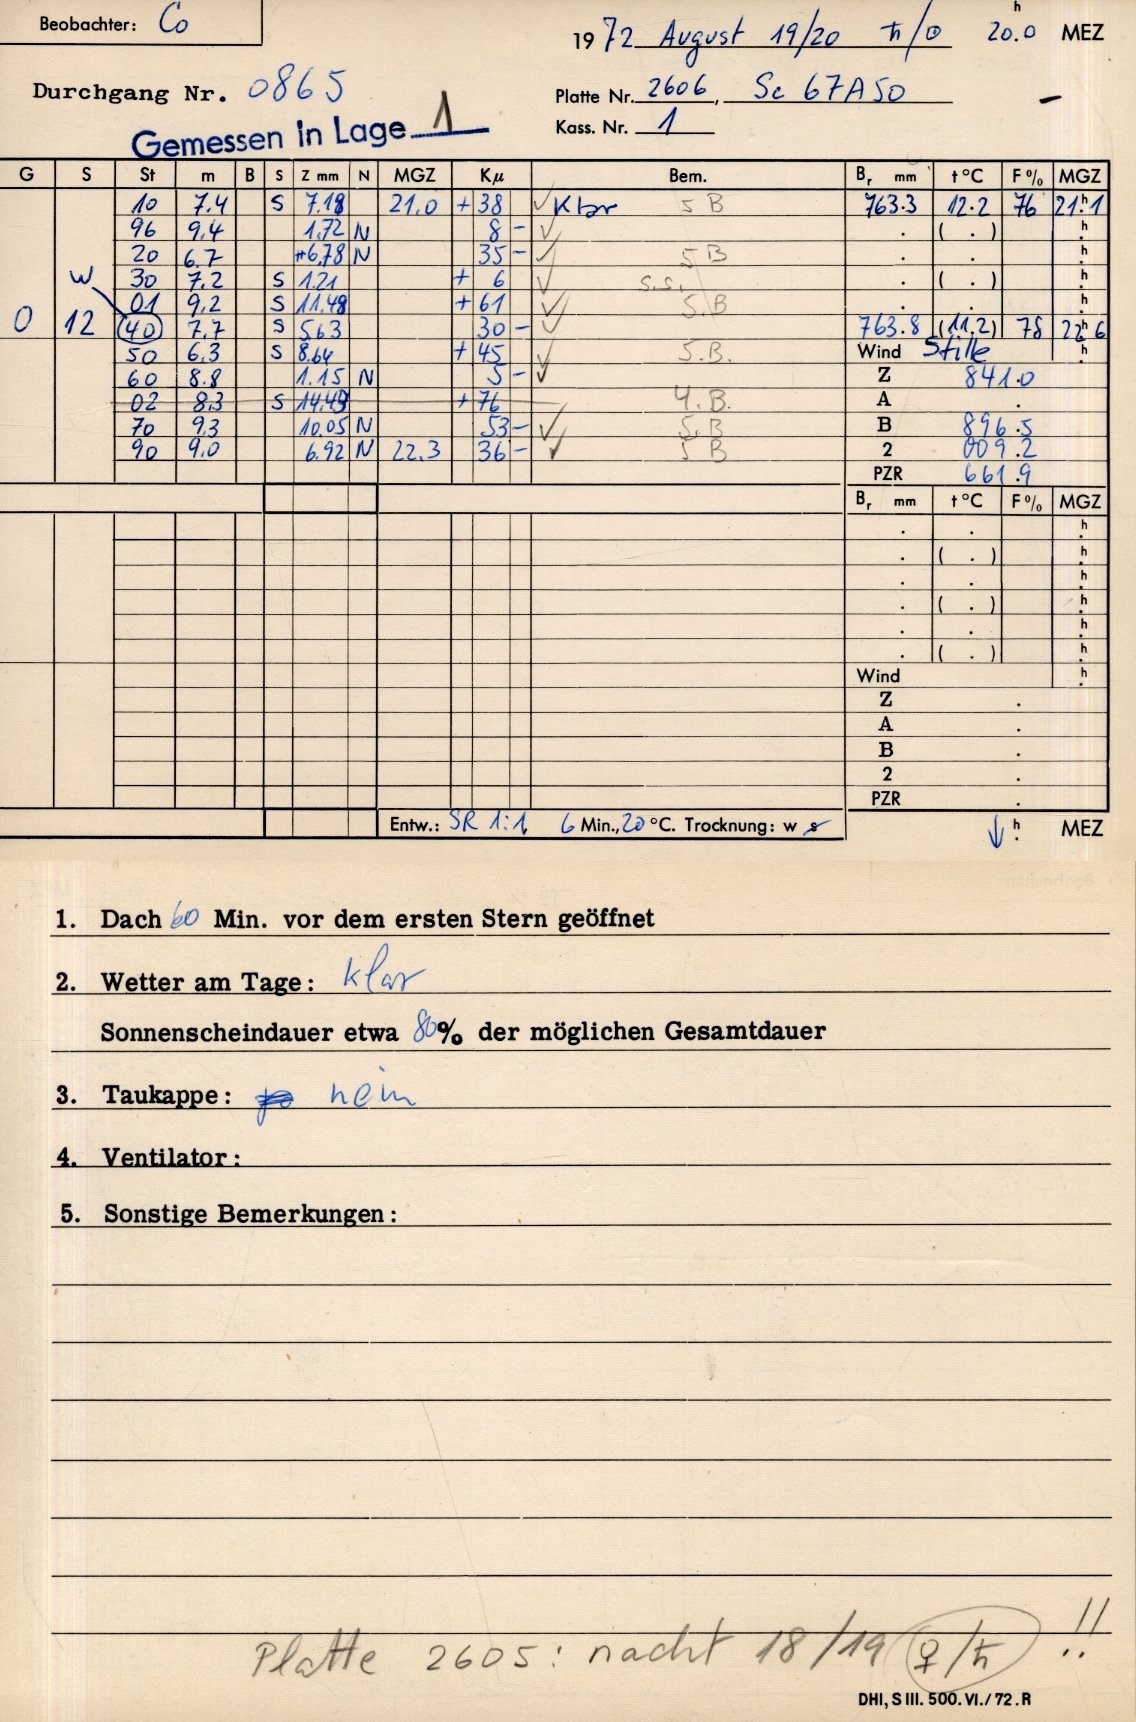 Beobachter: Co
1972 August 19/20 ♄/☉ 20.0 h MEZ
Durchgang Nr. 0865
Platte Nr. 2606, Sc 67A50
Gemessen in Lage 1
Kass. Nr. 1
G S St m B S Z mm N MGZ Kμ Bem. Br mm t °C F % MGZ
10 7.4 S 7.18 21.0 +38 ✓ Klar 5 B 763.3 12.2 76 21h1
96 9.4 1.72 N 8 - ✓ . ( . ) h
20 6.7 6.78 N 35 - ✓ 5 B . . h
W 30 7.2 S 1.21 + 6 ✓ S.S. . ( . ) h
01 9.2 S 11.48 + 61 ✓ 5.B . . h
0 12 40 7.7 S 5.63 30 - ✓ 763.8 (11.2) 78 22h6
50 6.3 S 8.64 + 45 ✓ 5.B. Wind Stille h
60 8.8 1.15 N 5 - ✓ Z 841.0
02 8.3 S 14.49 + 76 4.B. A .
70 9.3 10.05 N 53 - ✓ 5.B B 896.5
90 9.0 6.92 N 22.3 36 - ✓ 5 B 2 009.2
PZR 661.9
Br mm t °C F % MGZ
. . h
. ( . ) h
. . h
. ( . ) h
. . h
. ( . ) h
Wind h
Z .
A .
B .
2 .
PZR .
Entw.: SR 1:1, 6 Min., 20 °C. Trocknung: w s ↓ h MEZ
1. Dach 60 Min. vor dem ersten Stern geöffnet
2. Wetter am Tage: klar
Sonnenscheindauer etwa 80% der möglichen Gesamtdauer
3. Taukappe: ja nein
4. Ventilator:
5. Sonstige Bemerkungen:
Platte 2605: nacht 18/19 ♀/♄ !!
DHI, S III. 500. VI./72. R